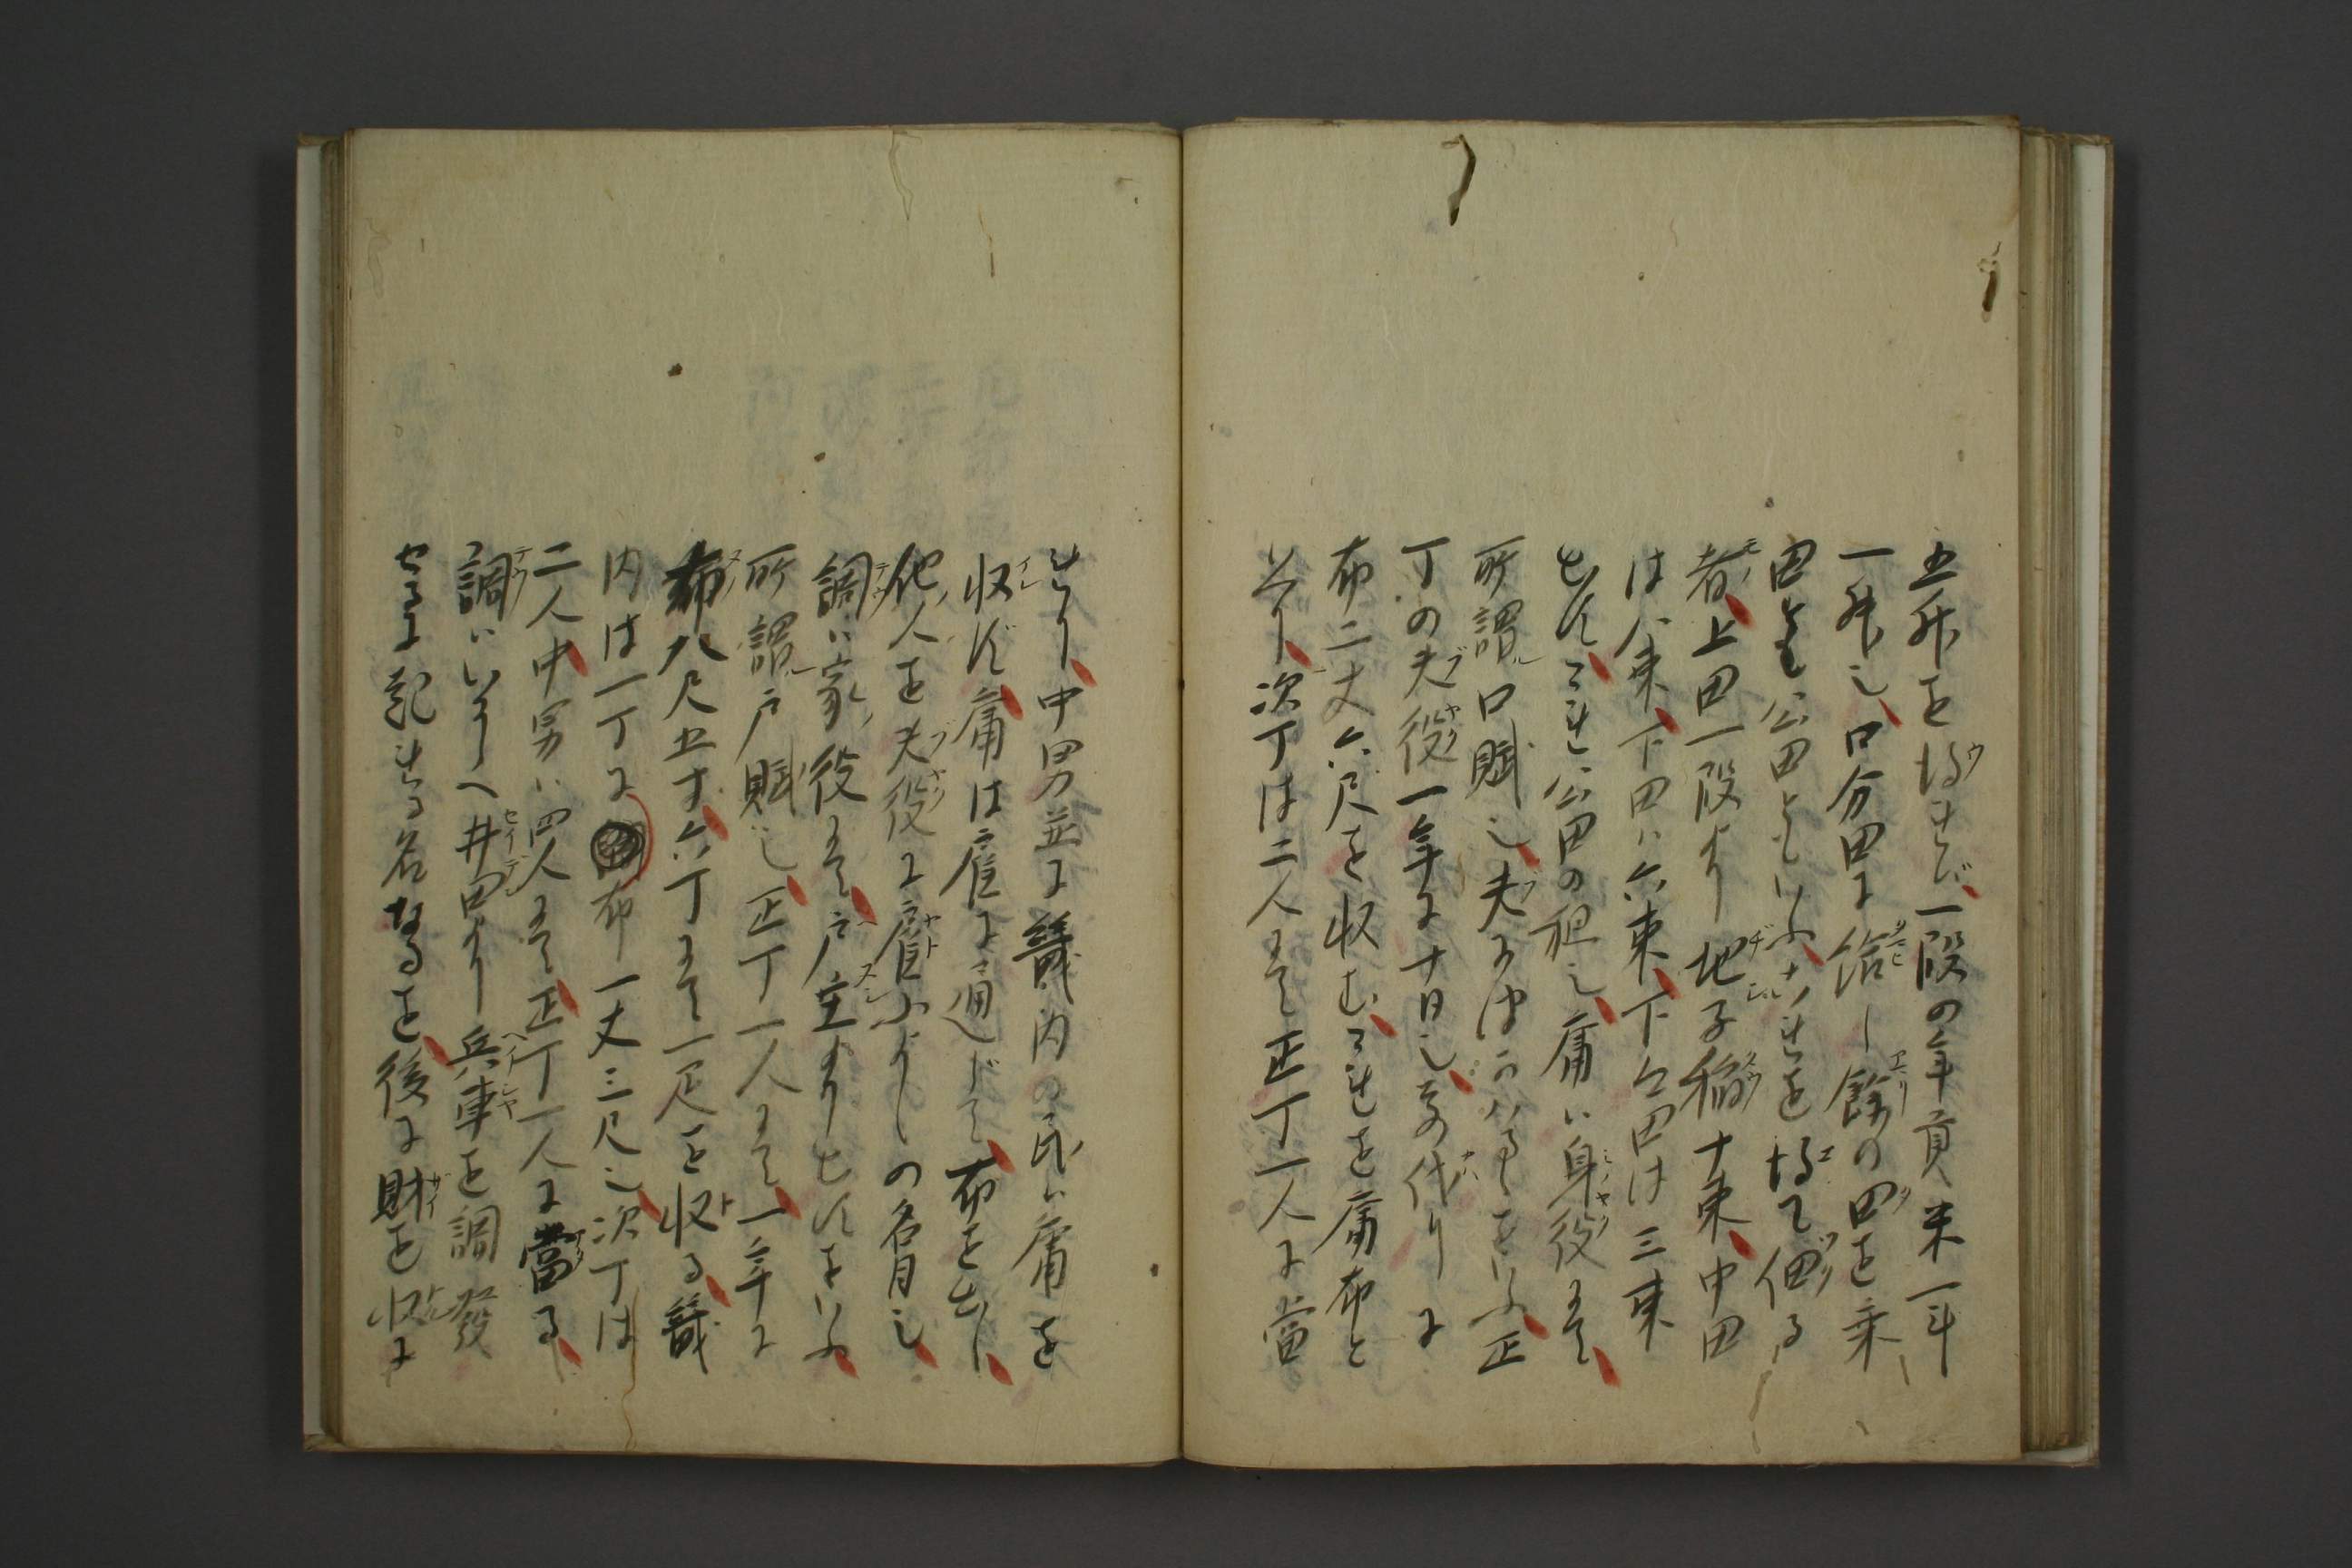 五升を得せば、一段の年貢米一斗
一升也、口分田に給し餘の田を乗
田とも公田ともいふ、それを得て佃る
者、上田一段より地子稲十束、中田
は八束、下田ハ六束、下々田は三束
出す、これ公田の租也、庸ハ身役にて、
所謂口賦也、夫かはりをいふ、正
丁の夫役一年に十日也、その代りに
布二丈六尺を収む、これを庸布と
いへり、次丁は二人にて正丁一人に當
れり、中男並に畿内の民ハ庸を
収ず、庸は雇に通じて、布を出し、
他人を夫役に雇ふよしの名目也、
調ハ家役にて、戸主より出すをいふ、
所謂戸賦也、正丁一人にて、一年に
布八尺五寸、六丁にて一疋を収る、畿
内は一丁に布一丈三尺也、次丁は
二人中男ハ四人にて、正丁一人に當る、
調ハいにしへ井田より兵車を調發
せるに起れる名なるを、後に財を収に